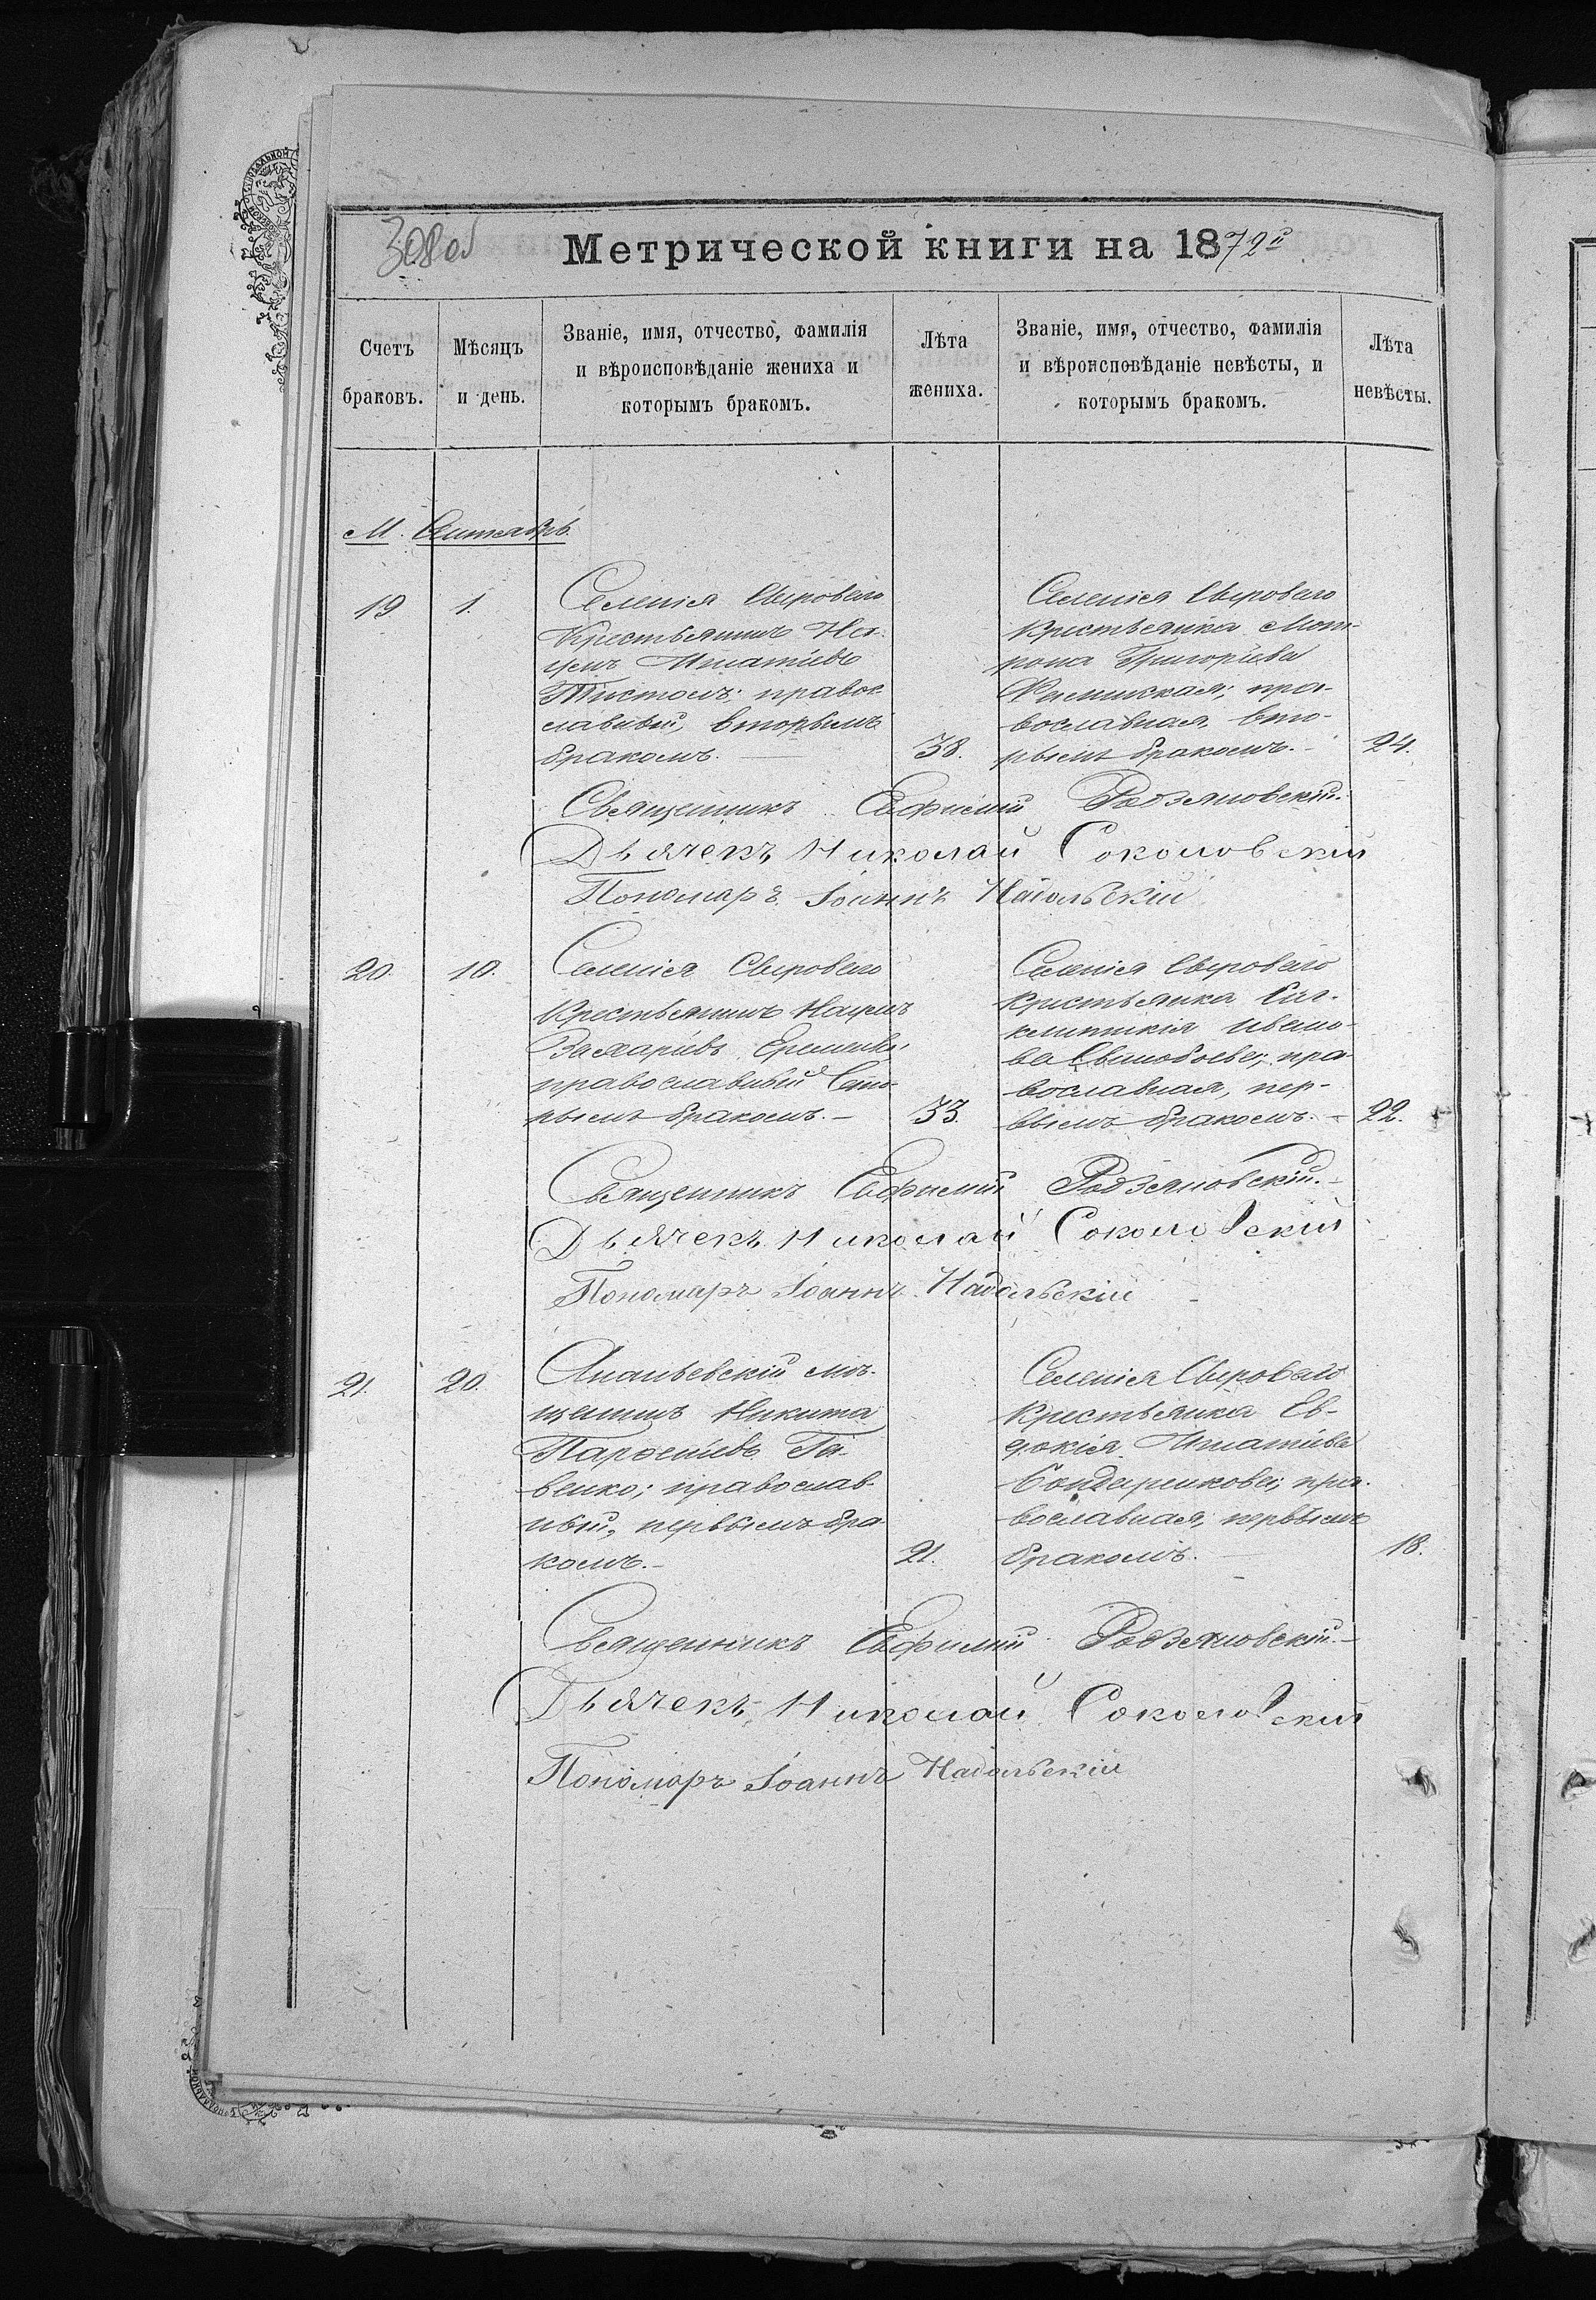 308об
Метрической книги на 1872й
Счетъ браковъ.
Мѣсяцъ и день.
Званіе, имя, отчество, фамилія и вѣроисповѣданіе жениха и которымъ бракомъ.
Лѣта жениха.
Званіе, имя, отчество, фамилія и вѣроисповѣданіе невѣсты, и которымъ бракомъ.
Лѣта невѣсты.
М. Сентябрь
19 1.
Селенія Сыроваго
Крестьянинъ
Игнатіевъ
правос-
лавный, вторымъ
бракомъ. 38.
Селенія Сыроваго
крестьянка Мот-
рона Григоріева
пра-
вославная, вто-
рымъ бракомъ. 24.
Священникъ Евфимій Родзяновскій.
Дьячекъ Николай Соколовскій
Пономарь Іоаннъ Надольскій
20. 10.
Селенія Сыроваго
Крестьянинъ Наумъ
Захаріевъ
православный вто-
рымъ бракомъ. – 33.
Селенія Сыроваго
крестьянка Син-
клитикія Ивано-
ва пра-
вославная, пер-
вымъ бракомъ. – 22.
Священникъ Евфимій Родзяновскій. –
Дьячекъ Николай Соколовскій
Пономарь Іоаннъ Надольскій
21. 20.
Ананьевскій мѣ-
щанинъ Никита
Парфеніевъ
венко; православ-
ный, первымъ бра-
комъ. – 21.
Селенія Сыроваго
крестьянка Ев-
докія Игнатіева
Бондаренкова; пра-
вославная, первымъ
бракомъ. 18.
Священникъ Евфимій Родзяновскій. –
Дьячекъ Николай Соколовскій
Пономарь Іоаннъ Надольскій